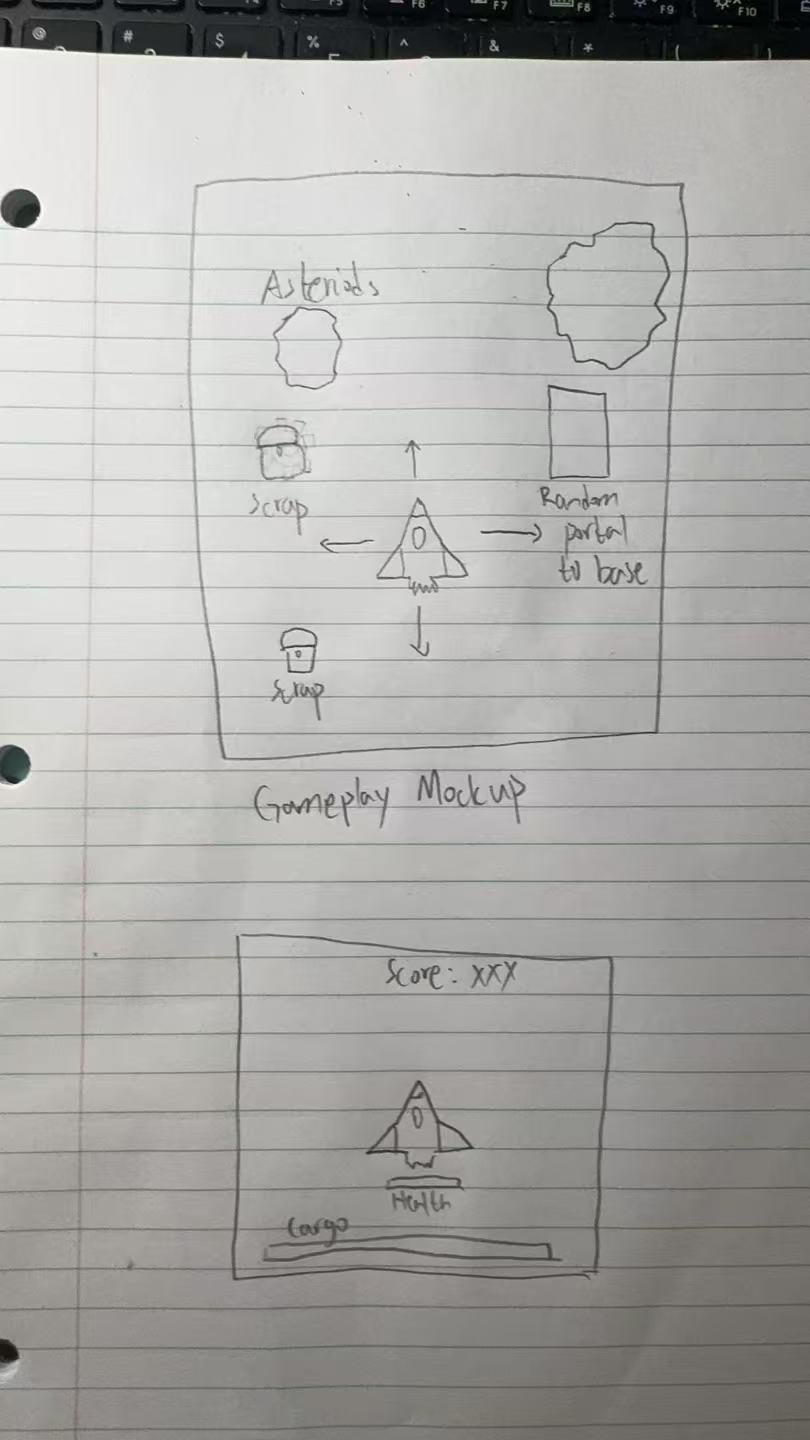 F6
F7
F8
F9
F10
@
#
$
%
^
&
*
(
Asteriods
Scrap
Random
portal
to base
Scrap
Gameplay Mockup
Score: XXX
Health
Cargo